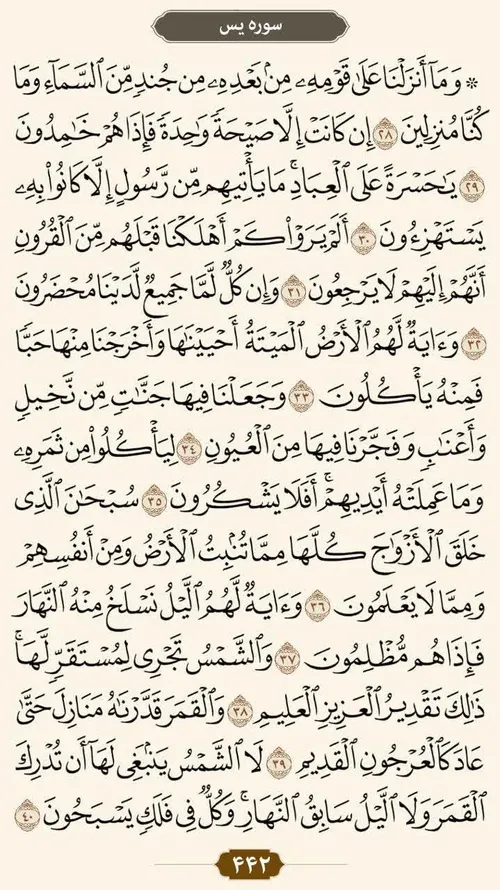 سوره یس
* وَمَآ أَنزَلْنَا عَلَىٰ قَوْمِهِۦ مِنۢ بَعْدِهِۦ مِن جُندٍ مِّنَ ٱلسَّمَآءِ وَمَا
كُنَّا مُنزِلِينَ ۲۸ إِن كَانَتْ إِلَّا صَيْحَةً وَٰحِدَةً فَإِذَا هُمْ خَٰمِدُونَ
۲۹ يَٰحَسْرَةً عَلَى ٱلْعِبَادِ ۚ مَا يَأْتِيهِم مِّن رَّسُولٍ إِلَّا كَانُوا۟ بِهِۦ
يَسْتَهْزِءُونَ ۳۰ أَلَمْ يَرَوْا۟ كَمْ أَهْلَكْنَا قَبْلَهُم مِّنَ ٱلْقُرُونِ
أَنَّهُمْ إِلَيْهِمْ لَا يَرْجِعُونَ ۳۱ وَإِن كُلٌّ لَّمَّا جَمِيعٌ لَّدَيْنَا مُحْضَرُونَ
۳۲ وَءَايَةٌ لَّهُمُ ٱلْأَرْضُ ٱلْمَيْتَةُ أَحْيَيْنَٰهَا وَأَخْرَجْنَا مِنْهَا حَبًّا
فَمِنْهُ يَأْكُلُونَ ۳۳ وَجَعَلْنَا فِيهَا جَنَّٰتٍ مِّن نَّخِيلٍ
وَأَعْنَٰبٍ وَفَجَّرْنَا فِيهَا مِنَ ٱلْعُيُونِ ۳۴ لِيَأْكُلُوا۟ مِن ثَمَرِهِۦ
وَمَا عَمِلَتْهُ أَيْدِيهِمْ ۖ أَفَلَا يَشْكُرُونَ ۳۵ سُبْحَٰنَ ٱلَّذِى
خَلَقَ ٱلْأَزْوَٰجَ كُلَّهَا مِمَّا تُنۢبِتُ ٱلْأَرْضُ وَمِنْ أَنفُسِهِمْ
وَمِمَّا لَا يَعْلَمُونَ ۳۶ وَءَايَةٌ لَّهُمُ ٱلَّيْلُ نَسْلَخُ مِنْهُ ٱلنَّهَارَ
فَإِذَا هُم مُّظْلِمُونَ ۳۷ وَٱلشَّمْسُ تَجْرِى لِمُسْتَقَرٍّ لَّهَا ۚ
ذَٰلِكَ تَقْدِيرُ ٱلْعَزِيزِ ٱلْعَلِيمِ ۳۸ وَٱلْقَمَرَ قَدَّرْنَٰهُ مَنَازِلَ حَتَّىٰ
عَادَ كَٱلْعُرْجُونِ ٱلْقَدِيمِ ۳۹ لَا ٱلشَّمْسُ يَنۢبَغِى لَهَآ أَن تُدْرِكَ
ٱلْقَمَرَ وَلَا ٱلَّيْلُ سَابِقُ ٱلنَّهَارِ ۚ وَكُلٌّ فِى فَلَكٍ يَسْبَحُونَ ۴۰
۴۴۲